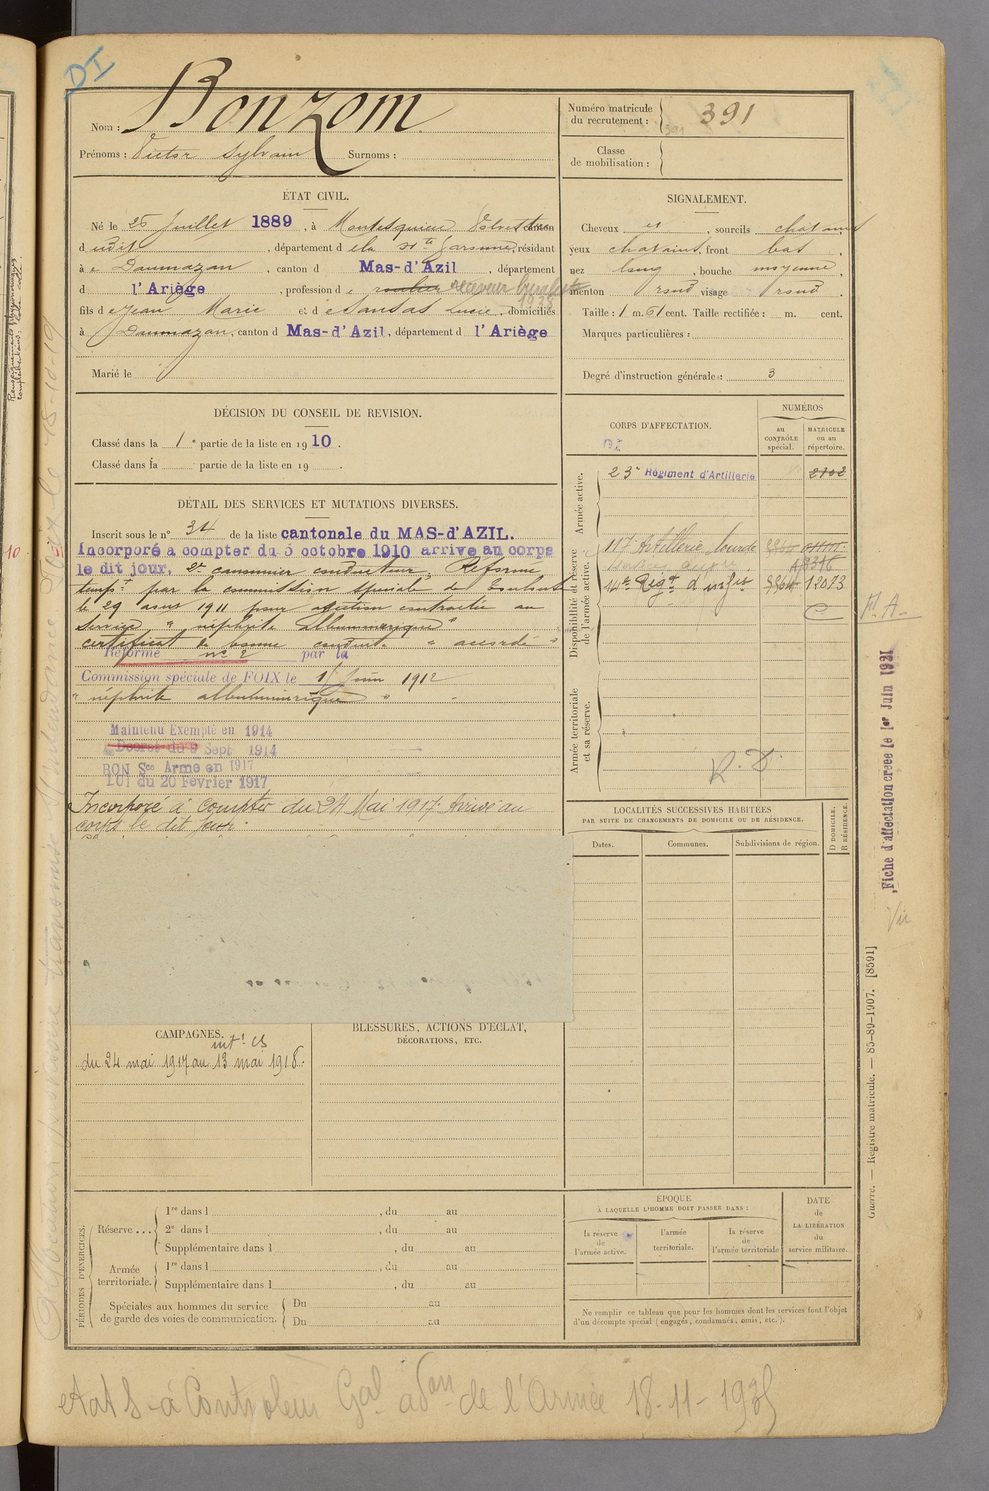 DI
Nom : Bonzom
Prénoms : Victor Sylvain Surnoms :
Numéro matricule du recrutement : 391
391
Classe de mobilisation :
ÉTAT CIVIL.
Né le 25 Juillet 1889, à Montesquieu Volvestre canton
d udit, département d e la Hte Garonne, résidant
à Daumazan, canton d Mas-d'Azil, département
d l'Ariège, profession de receveur buraliste
1938
fils de Jean Marie et de Sansas Lucie, domiciliés
à Daumazan, canton d Mas-d'Azil, département d l'Ariège
Marié le
SIGNALEMENT.
Cheveux et, sourcils chatains
yeux chatains, front bas,
nez long, bouche moyenne,
menton rond visage rond.
Taille : 1 m. 61 cent. Taille rectifiée : m. cent.
Marques particulières :
Degré d'instruction générale : 3
DÉCISION DU CONSEIL DE REVISION.
Classé dans la 1e partie de la liste en 1910.
Classé dans la partie de la liste en 19 .
DÉTAIL DES SERVICES ET MUTATIONS DIVERSES.
Inscrit sous le n° 34 de la liste cantonale du MAS-d'AZIL.
Incorporé à compter du 5 octobre 1910 arrivé au corps
le dit jour, 2e canonnier conducteur, Réformé
tempre par la commission spéciale de Toulouse
le 29 aout 1911 pour affection contractée au
service "néphrite albuminurique"
certificat de bonne conduite "accordé"
Réformé n° 2 par la
Commission spéciale de FOIX le 15 Juin 1912
"néphrite albuminurique"
Maintenu Exempté en 1914
Décret du 9 Sept 1914
BON Sce Armé en 1917
LOI du 20 Février 1917
Incorporé à compter du 24 Mai 1917. Arrivé au
corps le dit jour.
CORPS D'AFFECTATION.
NUMÉROS
au CONTRÔLE spécial.
MATRICULE ou au répertoire.
Armée active.
23e Régiment d'Artillerie 2102
Disponibilité et réserve de l'armée active.
117e Artillerie lourde
14e Regt d'infie 12073
Armée territoriale et sa réserve.
R.D.
Fiche d'affectation créée le 1er Juin 1931
Vu
LOCALITÉS SUCCESSIVES HABITÉES
PAR SUITE DE CHANGEMENTS DE DOMICILE OU DE RÉSIDENCE.
Dates. Communes. Subdivisions de région. D DOMICILE. R RÉSIDENCE.
CAMPAGNES.
int. CS
du 24 mai 1917 au 13 mai 1918.
BLESSURES, ACTIONS D'ÉCLAT,
DÉCORATIONS, ETC.
PÉRIODES D'EXERCICES.
Réserve ...
1re dans l , du au
2e dans l , du au
Supplémentaire dans l , du au
Armée territoriale.
1re dans l , du au
Supplémentaire dans l , du au
Spéciales aux hommes du service de garde des voies de communication.
Du au
Du au
ÉPOQUE
À LAQUELLE L'HOMME DOIT PASSER DANS :
la réserve de l'armée active.
l'armée territoriale.
la réserve de l'armée territoriale
DATE de LA LIBÉRATION du service militaire.
Ne remplir ce tableau que pour les hommes dont les services font l'objet
d'un décompte spécial (engagés, condamnés, omis, etc.).
Guerre. — Registre matricule. — 85-89-1907. [8591]
Etat S-à Controleur Gal adon de l'Armée 18-11-1935